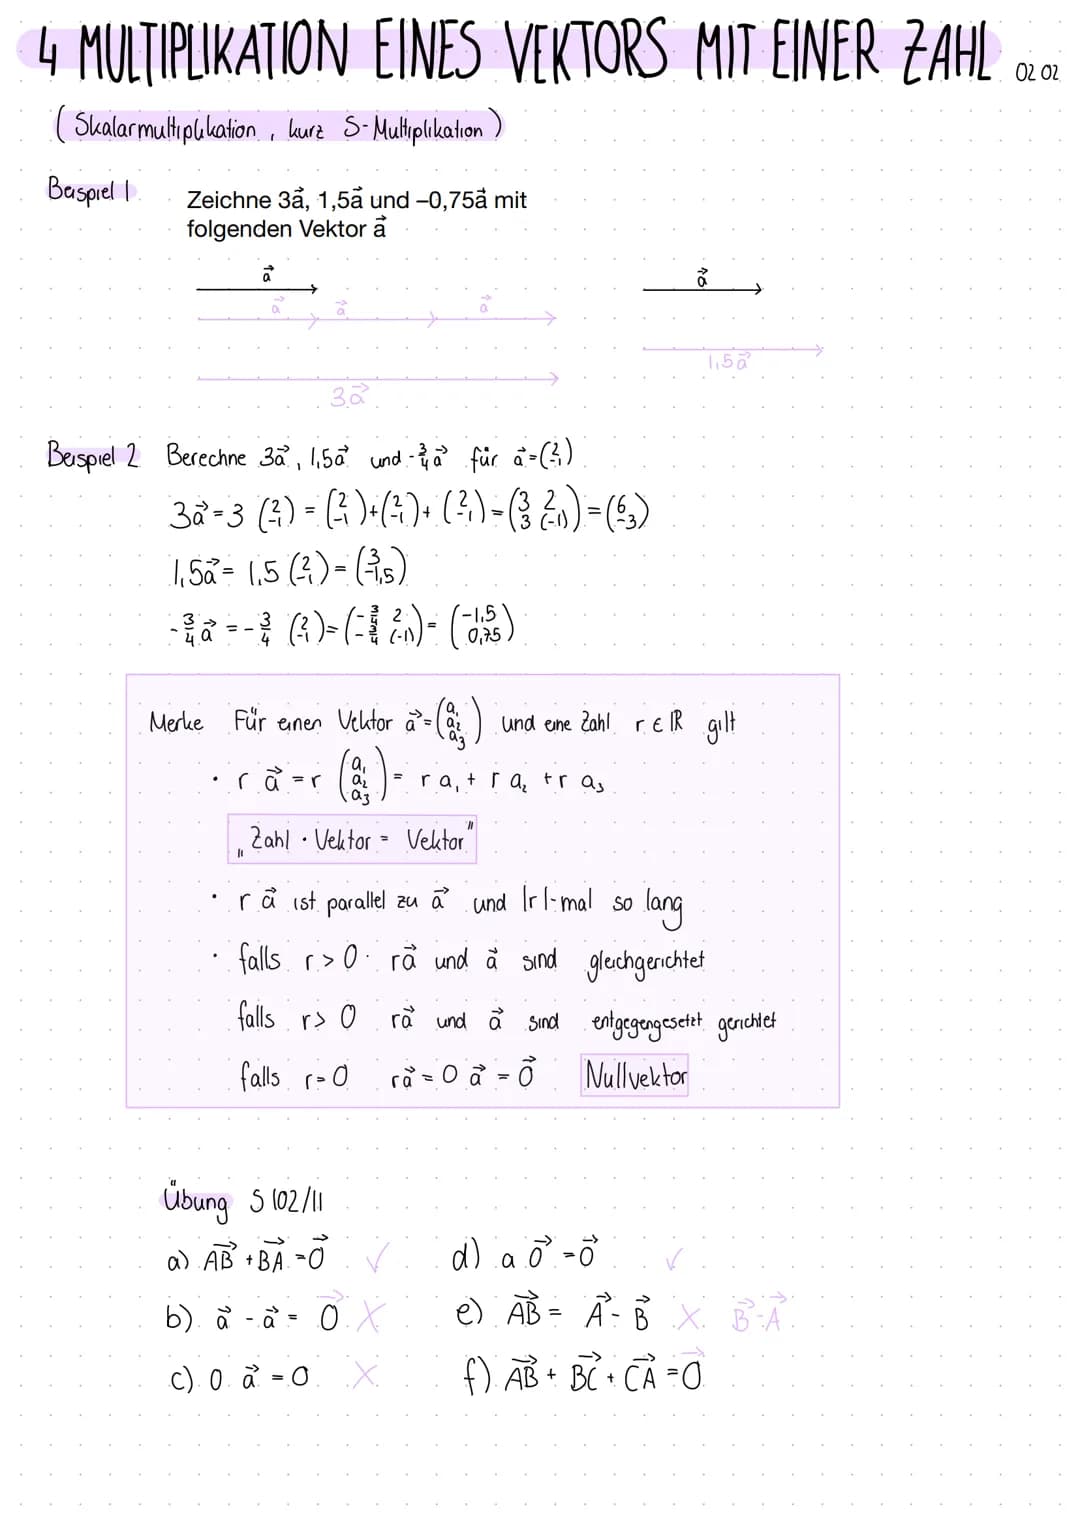 4 MULTIPLIKATION EINES VEKTORS MIT EINER ZAHL 02 02
(Skalarmultiplikation, kurz S-Multiplikation)
Beispiel 1 Zeichne 3a⃗, 1,5a⃗ und –0,75a⃗ mit
folgenden Vektor a⃗
a⃗ a⃗
a⃗ a⃗ a⃗
1,5a⃗
3a⃗
Beispiel 2 Berechne 3a⃗, 1,5a⃗ und -¾a⃗ für a⃗=(2 -1)
3a⃗=3 (2 -1) = (2 -1)+(2 -1)+(2 -1)=(3 2 3 (-1))=(6 -3)
1,5a⃗= 1,5 (2 -1)=(3 -1,5)
-¾a⃗ = -¾ (2 -1)=(-¾ 2 -¾ (-1))= (-1,5 0,75)
Merke Für einen Vektor a⃗=(a₁ a₂ a₃) und eine Zahl r∈ℝ gilt
• r a⃗ =r (a₁ a₂ a₃)= r a₁+ r a₂ +r a₃
„Zahl · Vektor = Vektor"
• r a⃗ ist parallel zu a⃗ und |r|-mal so lang
• falls r>0 ra⃗ und a⃗ sind gleichgerichtet
falls r> 0 ra⃗ und a⃗ sind entgegengesetzt gerichtet
falls r=0 ra⃗ = 0 a⃗ = 0⃗ Nullvektor
Übung S 102/11
a) AB⃗ +BA⃗ =0⃗ ✓ d) a 0⃗ =0⃗ ✓
b) a⃗ - a⃗ = 0⃗ X e) AB⃗ = A⃗ - B⃗ X B⃗-A⃗
c) 0 a⃗ = 0 X f) AB⃗ + BC⃗ + CA⃗ =0⃗